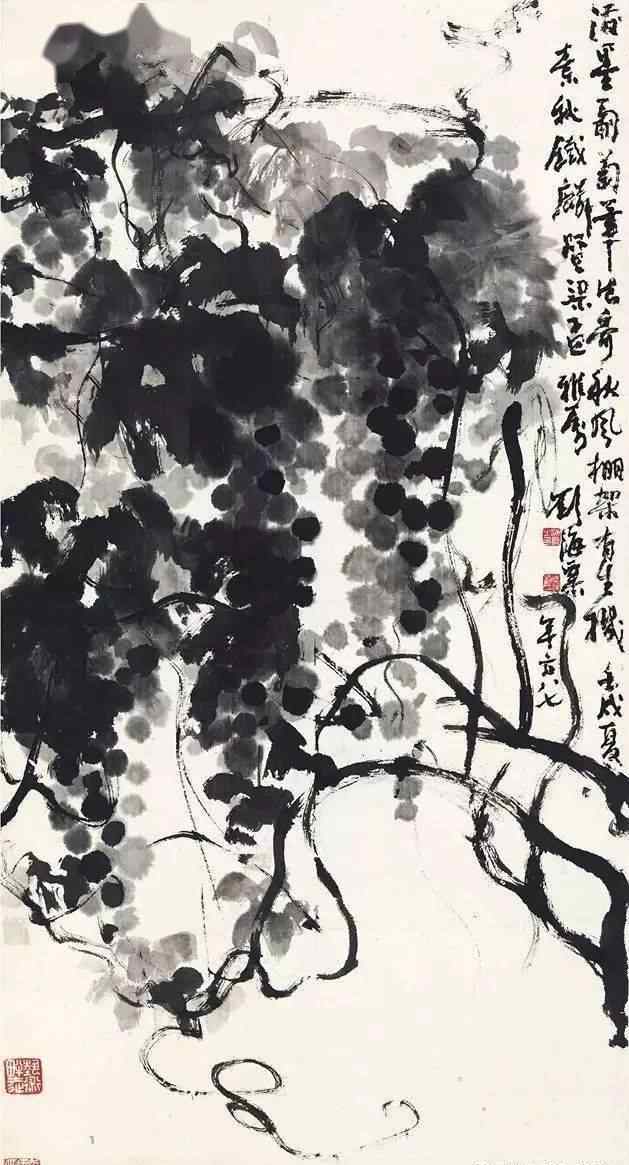 潑墨葡萄筆法奇秋風棚架有生機 壬戌夏
素秋鐵麟賢梁孟雅屬 劉海粟 年方八七